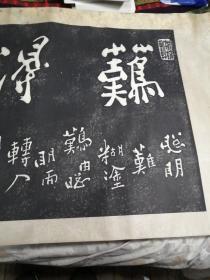 難得
聰明
難
糊塗
難由聰
明而
轉入